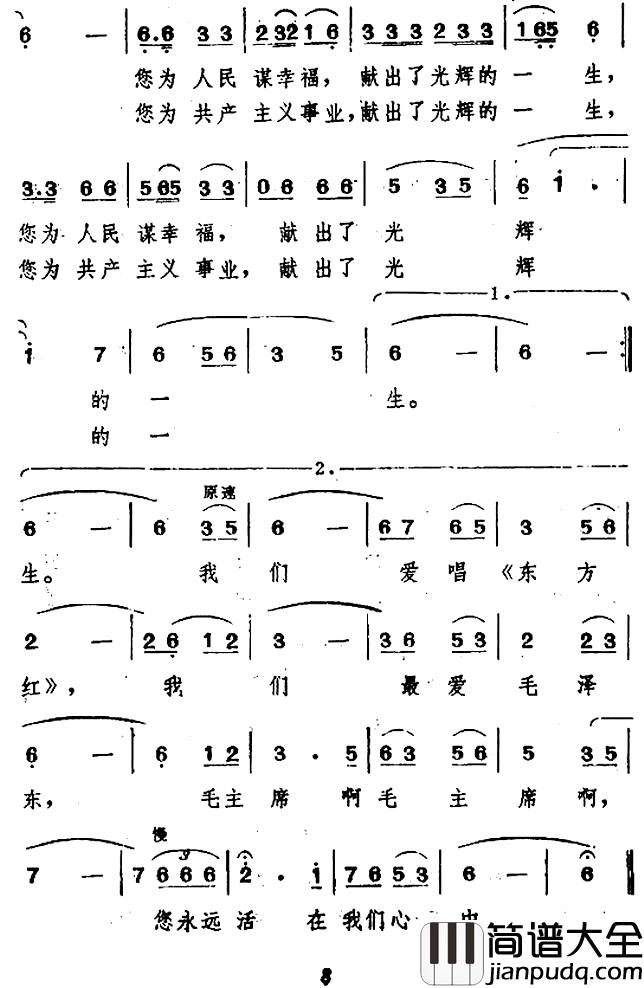 6 — | 6.6 3 3 | 2 32 1 6 | 3 3 3 2 3 3 | 1 65 6 |
您为 人民 谋幸福， 献出了光辉的一 生，
您为 共产 主义事业，献出了光辉的一 生，
3.3 6 6 | 5 65 3 3 | 0 6 6 6 | 5 3 5 | 6 i . |
您为 人民 谋幸福， 献 出了 光 辉
您为 共产 主义 事业， 献 出了 光 辉
1.
i 7 | 6 5 6 | 3 5 | 6 — | 6 — :|
的 一 生。
的 一
2.
原速
6 — | 6 3 5 | 6 — | 6 7 6 5 | 3 5 6 |
生。 我 们 爱 唱 《东 方
2 — | 2 6 1 2 | 3 — | 3 6 5 3 | 2 2 3 |
红》， 我 们 最 爱 毛 泽
6 — | 6 1 2 | 3 . 5 | 6 3 5 6 | 5 3 5 |
东， 毛主 席 啊 毛 主 席 啊，
慢
3
7 — | 7 6 6 6 | 2 . i | 7 6 5 3 | 6 — | 6 ‖
您永远 活 在 我们 心
简谱大全
jianpudq.com
8